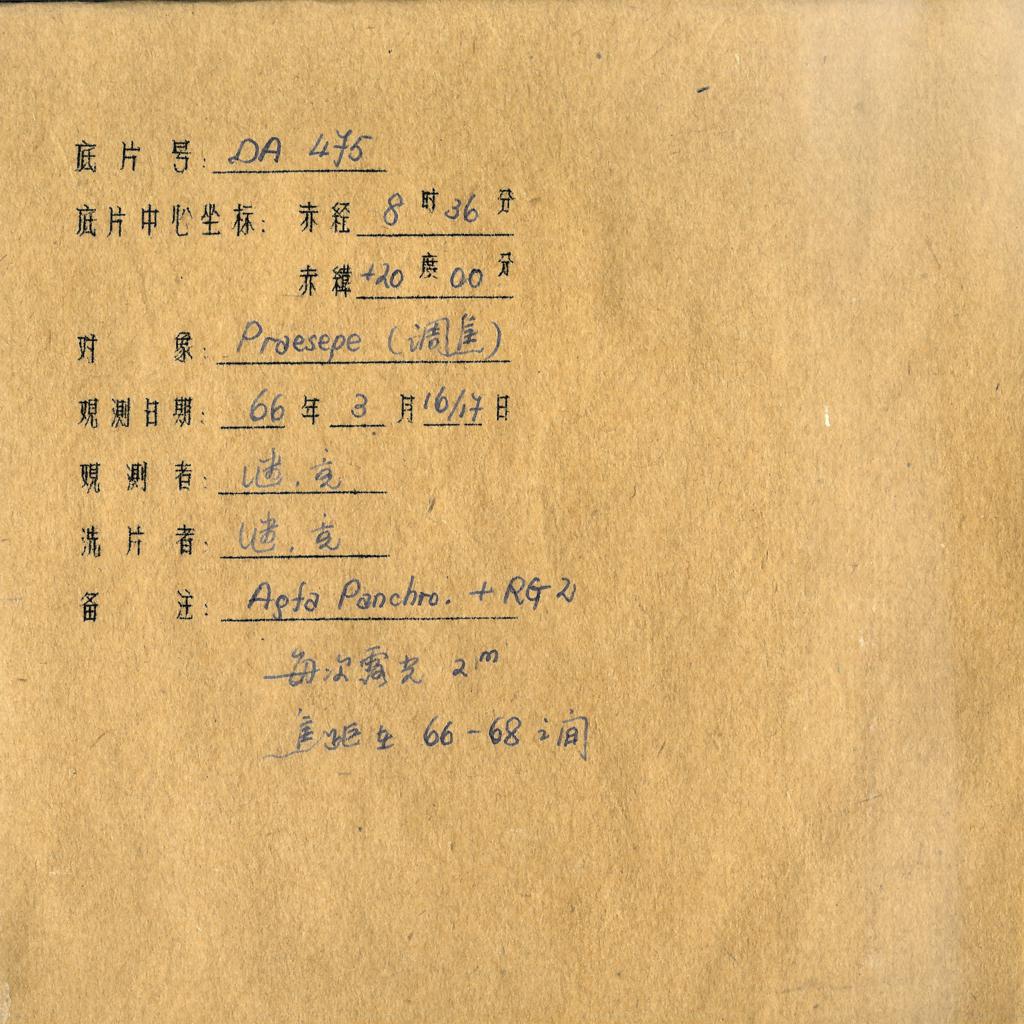 底片号: DA 475
底片中心坐标: 赤经 8 时 36 分
赤緯 +20 度 00 分
对象: Praesepe (调焦)
观测日期: 66 年 3 月 16/17 日
观测者:
洗片者:
备注: Agfa Panchro. + RG 2
每次露光 2m
焦距在 66-68 之间